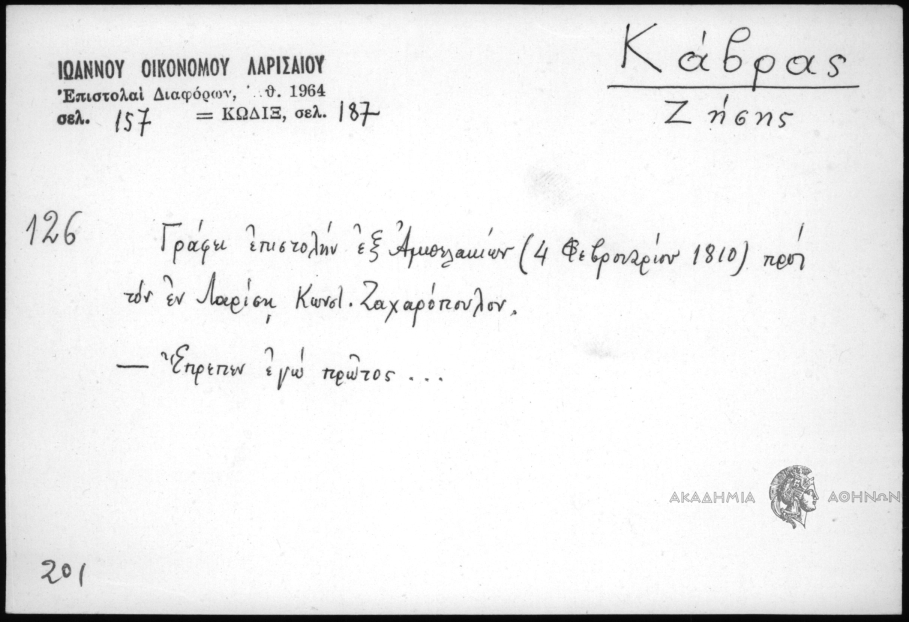 Κάβρας
Ζήσης
ΙΩΑΝΝΟΥ ΟΙΚΟΝΟΜΟΥ ΛΑΡΙΣΑΙΟΥ
Ἐπιστολαὶ Διαφόρων, θ. 1964
σελ. 157 = ΚΩΔΙΞ, σελ. 187
126
Γράφει ἐπιστολήν ἐξ Ἀμπελακίων (4 Φεβρουαρίου 1810) πρός
τόν ἐν Λαρίσῃ Κωνστ. Ζαχαρόπουλον.
— Ἔπρεπεν ἐγώ πρῶτος ...
ΑΚΑΔΗΜΙΑ ΑΘΗΝΩΝ
201